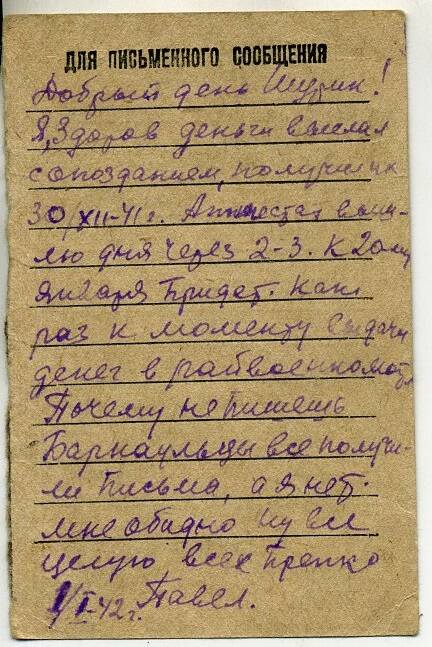 ДЛЯ ПИСЬМЕННОГО СООБЩЕНИЯ
Добрый день Шурик!
Я, Здоров деньги выслал
с опозданием, получил их
30/XII-41г. Аттестат выш-
лю дня через 2-3. К 20му
января Придет. Как
раз к моменту выдачи
денег в райвоенкомате
Почему не пишешь
Барнаульцы все получи-
ли письма, а я нет.
мне обидно Ну все
целую всех Крепко
1/I-42г. Павел.